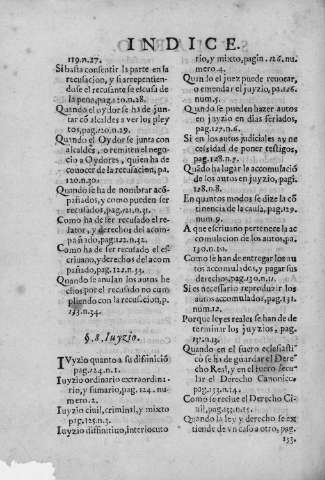 INDICE.
119.n.27.
Si basta consentir la parte en la
recusacion, y si arrepentien-
dose el recusante se escusa de
la pena, pag.120.n.28.
Quando el oydor se ha de jun-
tar cō alcaldes a ver los pley
tos, pag.120.n.29.
Quando el Oydor se junta con
alcaldes, o remiten el nego-
cio a Oydores, quien ha de
conocer de la recusacion, pa.
120.n.30.
Quando se ha de nombrar acō-
pañados, y como pueden ser
recusados, pag.121.n.31.
Como ha de ser recusado el re-
lator, y derechos del acom-
pañado, pag.122.n.32.
Como ha de ser recusado el es-
criuano, y derechos del acom
pañado, pag.122.n.33.
Quando se anulan los autos he
chos por el recusado no cum
pliendo con la recusacion, p.
123.n.34.
§.8. Iuyzio.
IVyzio quanto a su difinició
pag.124.n.1.
Iuyzio ordinario extraordina-
rio, y sumario, pag.124. nu-
mero.2.
Iuyzio ciuil, criminal, y mixto
pag.125.n.3.
Iuyzio difinitiuo, interlocuto
rio, y mixto, pagin.126.nu.
mero.4.
Quando el juez puede reuocar,
o emendar el juyzio, pa.126.
num.5.
Quando se pueden hazer autos
en juyzio en dias feriados,
pag.127.n.6.
Si en los autos judiciales ay ne
cessidad de poner testigos,
pag.128.n.7.
Quādo ha lugar la accumulació
de los autos en juyzio, pagi.
128.n.8.
En quantos modos se dize la cō
tinencia de la causa, pag.129.
num.9.
A que escriuano pertenece la ac
comulacion de los autos, pa.
130.n.10.
Como se han de entregar los au
tos accomulados, y pagar sus
derechos, pag.130.n.11.
Si es necessario reproduzir los
autos accomulados, pag.131.
num.12.
Porque leyes reales se han de de
terminar los juyzios, pag.
131.n.13.
Quando en el fuero eclesiasti-
co se ha de guardar el Dere
cho Real, y en el fuero secu-
lar el Derecho Canonico,
pag.133.n.14.
Como se reciue el Derecho Ci-
uil, pag.133.n.15.
Quando la ley y derecho se ex
tiende de vn caso a otro, pag.
133.